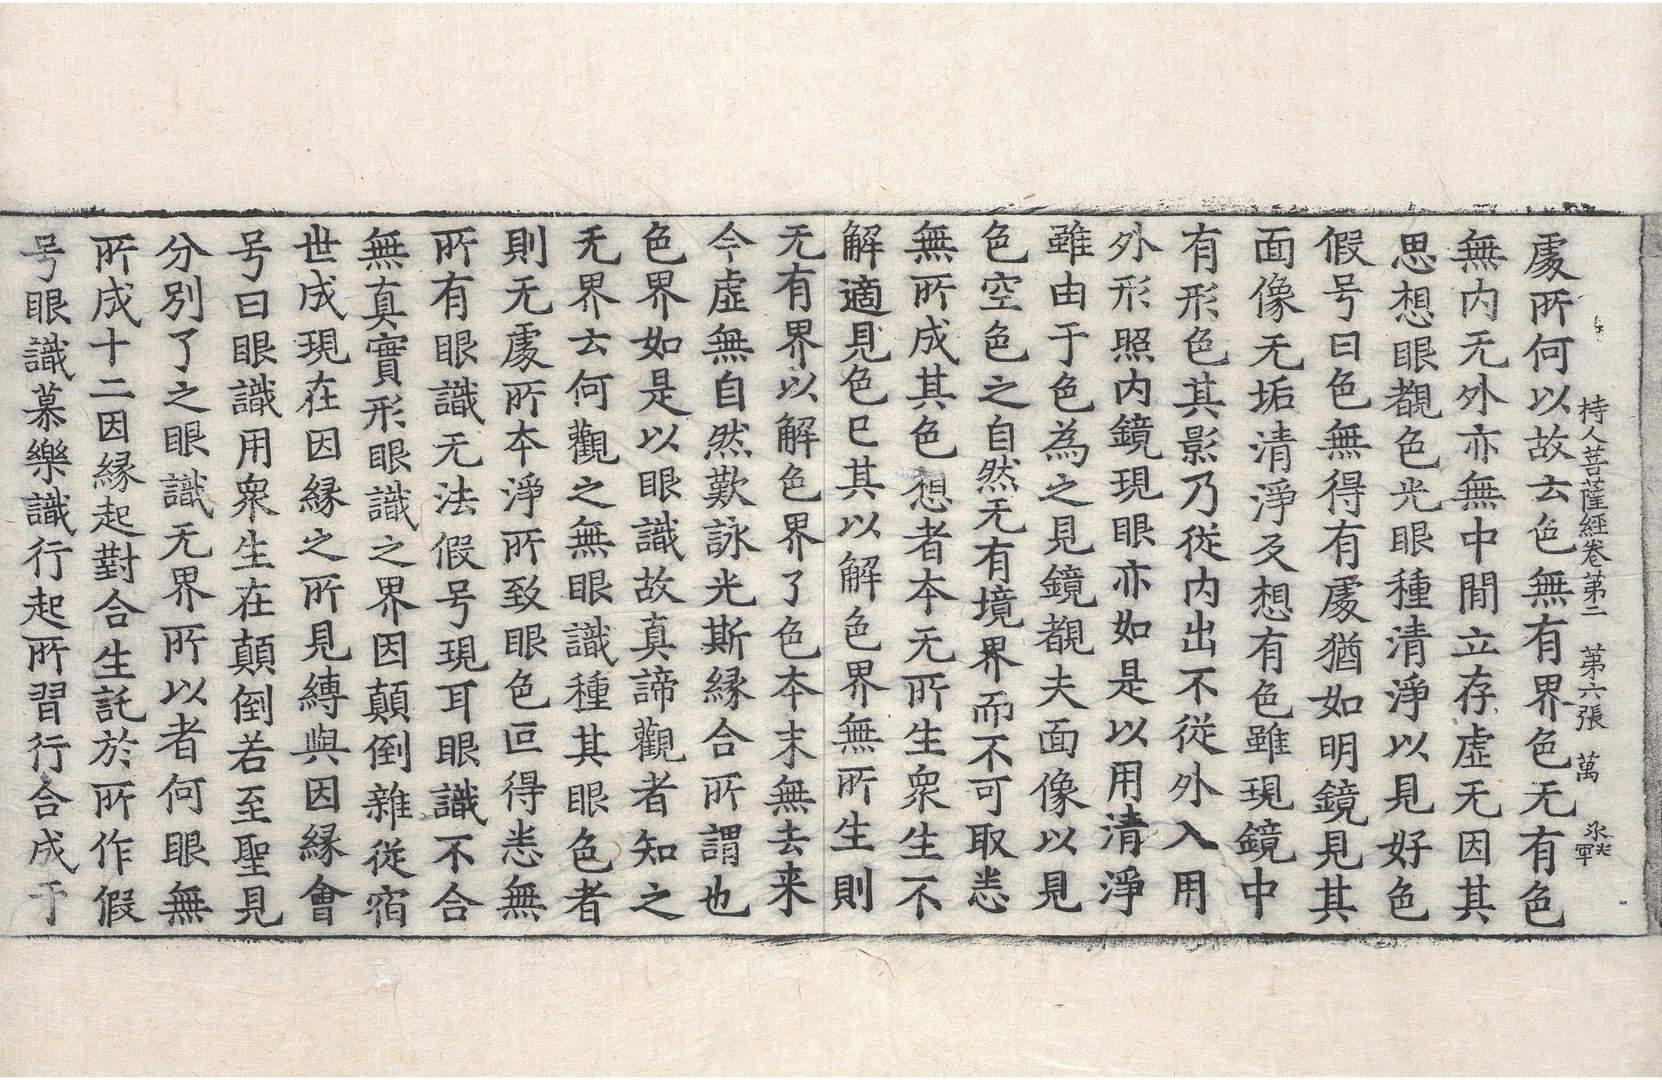 持人菩薩經卷第二　第六張　萬
處所何以故去色無有界色无有色
無内无外亦無中間立存虛无因其
思想眼覩色光眼種清淨以見好色
假号曰色無得有處猶如明鏡見其
面像无垢清淨及想有色雖現鏡中
有形色其影乃從内出不從外入用
外形照内鏡現眼亦如是以用清淨
雖由于色為之見鏡覩夫面像以見
色空色之自然无有境界而不可取悉
無所成其色想者本无所生衆生不
解適見色已其以解色界無所生則
无有界以解色界了色本末無去来
今虛無自然歎詠光斯縁合所謂也
色界如是以眼識故真諦觀者知之
无界去何觀之無眼識種其眼色者
則无處所本淨所致眼色叵得悉無
所有眼識无法假号現耳眼識不合
無真實形眼識之界因顛倒雜從宿
世成現在因縁之所見縛與因縁會
号曰眼識用衆生在顛倒若至聖見
分別了之眼識无界所以者何眼無
所成十二因縁起對合生託於所作假
号眼識慕樂識行起所習行合成于